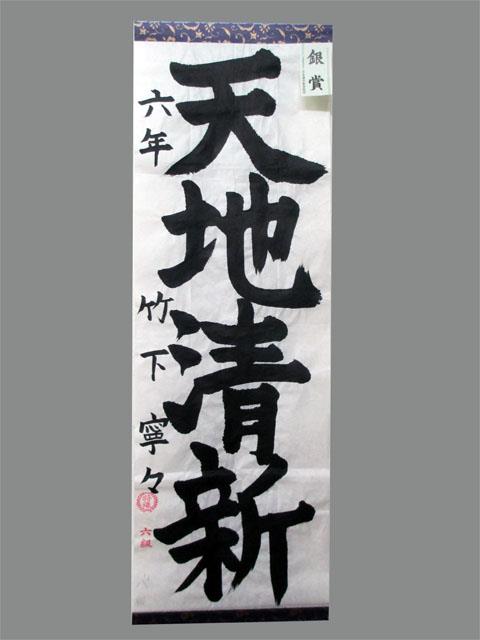 銀賞
天地清新
六年 竹下寧々
六級